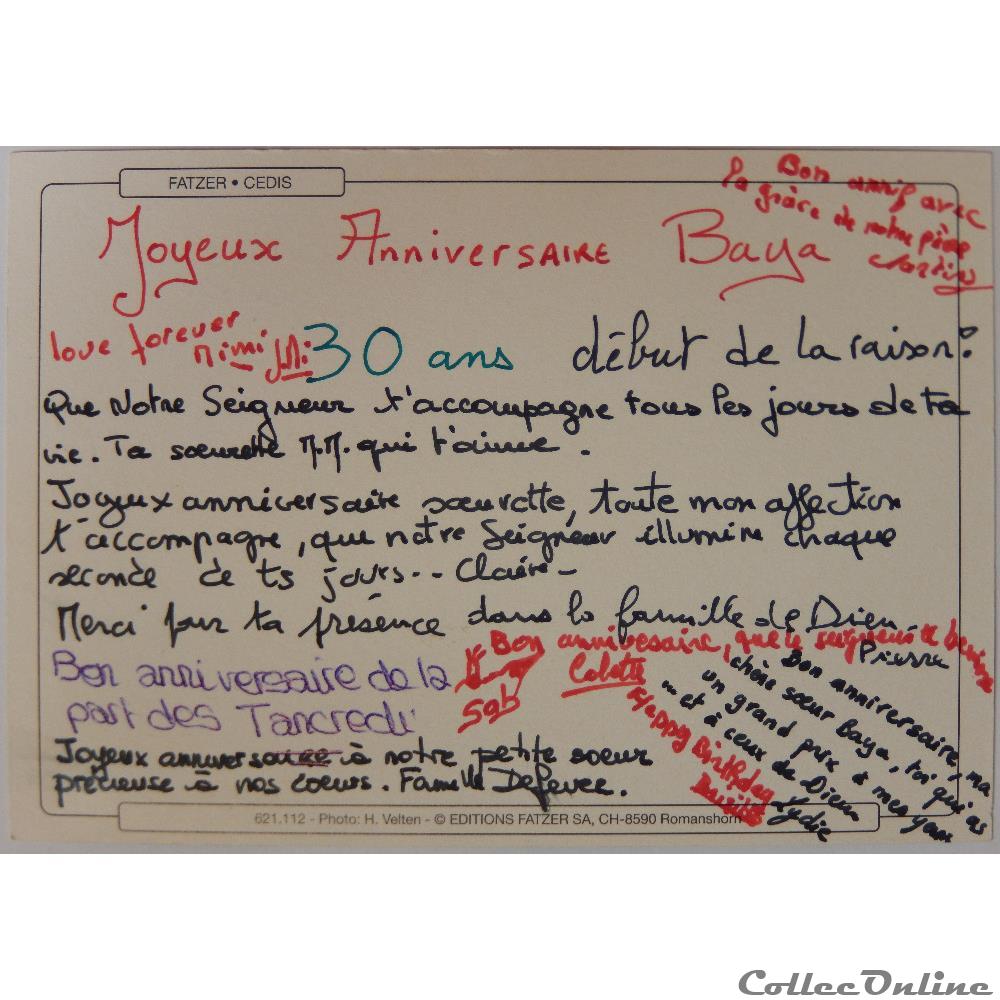 FATZER • CEDIS
Bon annif avec
la grâce de notre père
Joyeux Anniversaire Baya
love forever
mimi
30 ans début de la raison?
Que Notre Seigneur t'accompagne tous les jours de ta
vie. Ta soeurette M.M. qui t'aime.
Joyeux anniversaire soeurette, toute mon affection
t'accompagne, que notre Seigneur illumine chaque
seconde de ts jours... Claire -
Merci pour ta présence dans la famille de Dieu.
Pierre
Bon anniversaire, que le seigneur te
Colette
Bon anniversaire de la
part des Tancredi
Sab
Happy Birthday
Bon anniversaire, ma
chère soeur Baya, toi qui as
un grand prix à mes yeux
... et à ceux de Dieu
Lydie
Joyeux anniversaire à notre petite soeur
précieuse à nos coeurs. Famille Defever.
621.112 - Photo: H. Velten - © EDITIONS FATZER SA, CH-8590 Romanshorn
CollecOnline